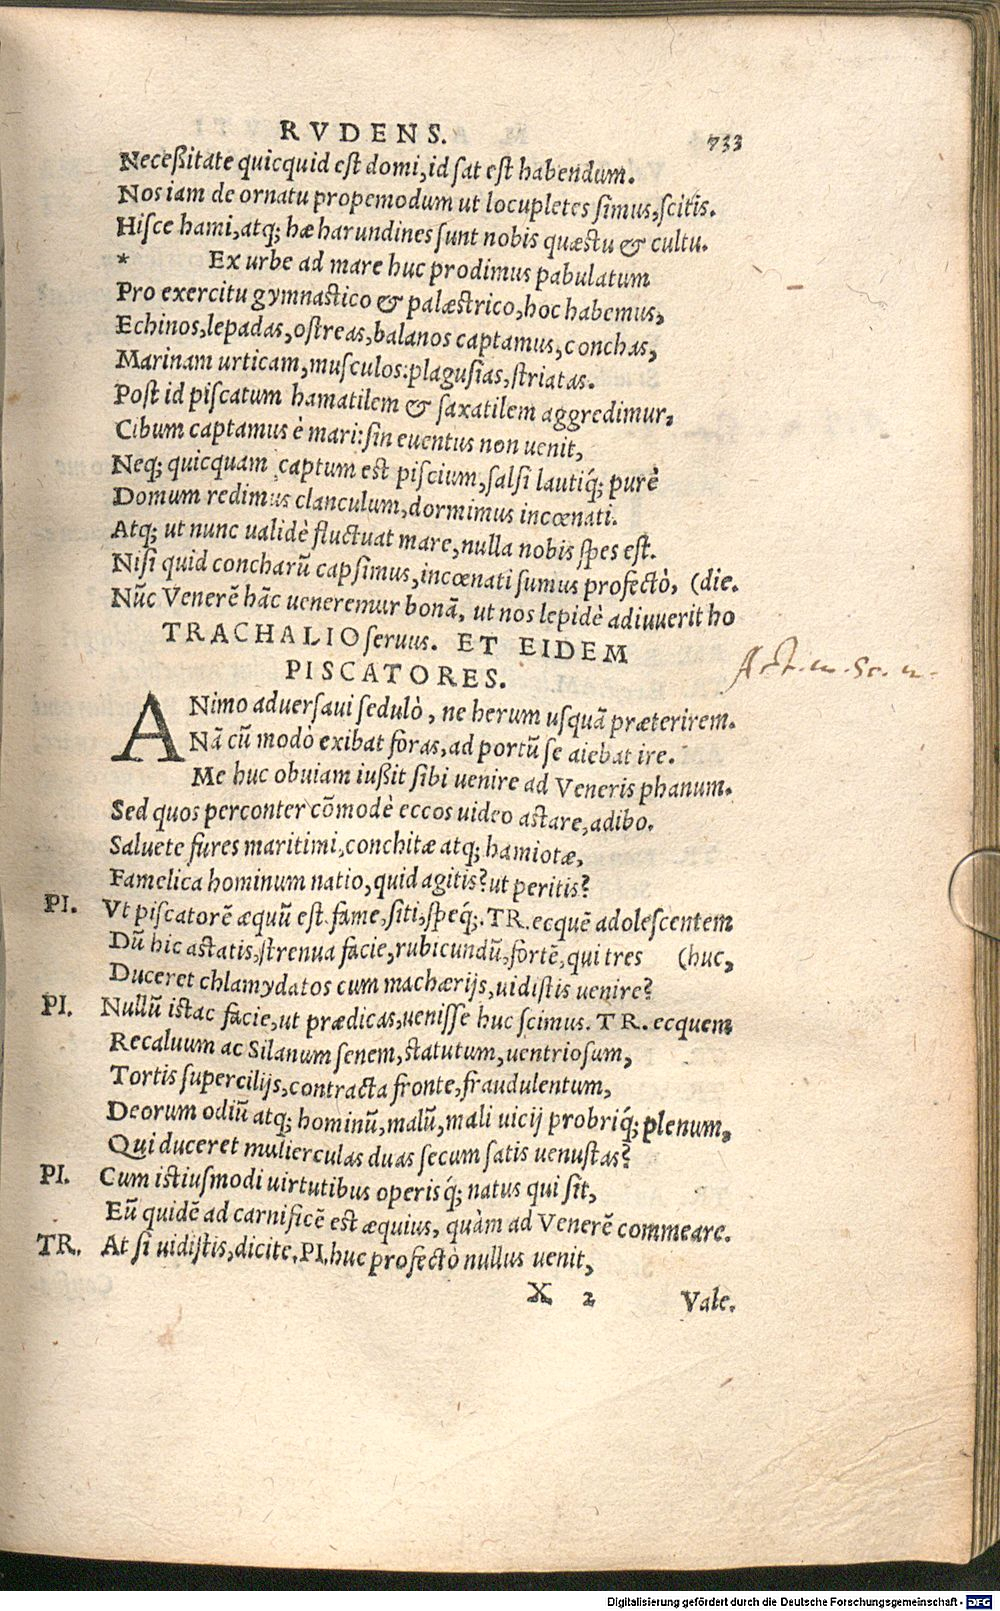 RVDENS. 733
Neceßitate quicquid est domi, id sat est habendum.
Nos iam de ornatu propemodum ut locupletes simus, scitis.
Hisce hami, atq; hæ harundines sunt nobis quæstu & cultu.
* Ex urbe ad mare huc prodimus pabulatum
Pro exercitu gymnastico & palæstrico, hoc habemus,
Echinos, lepadas, ostreas, balanos captamus, conchas,
Marinam urticam, musculos: plagusias, striatas.
Post id piscatum hamatilem & saxatilem aggredimur,
Cibum captamus è mari: sin euentus non uenit,
Neq; quicquam captum est piscium, salsi lautiq́; purè
Domum redimus clanculum, dormimus incœnati.
Atq; ut nunc ualidè fluctuat mare, nulla nobis spes est.
Nisi quid concharũ capsimus, incœnati sumus profectò, (die.
Nũc Venerẽ hãc ueneremur bonã, ut nos lepidè adiuuerit ho
TRACHALIO seruus. ET EIDEM
PISCATORES.
ANimo aduersaui sedulò, ne herum usquã præterirem.
Nã cũ modò exibat foras, ad portũ se aiebat ire.
Me huc obuiam iußit sibi uenire ad Veneris phanum.
Sed quos perconter cõmodè eccos uideo astare, adibo.
Saluete fures maritimi, conchitæ atq; hamiotæ,
Famelica hominum natio, quid agitis? ut peritis?
PI. Vt piscatorẽ æquũ est fame, siti, speq́;. TR. ecquẽ adolescentem
Dũ hic astatis, strenua facie, rubicundũ, fortẽ, qui tres (huc,
Duceret chlamydatos cum machærijs, uidistis uenire?
PI. Nullũ istac facie, ut prædicas, uenisse huc scimus. TR. ecquem
Recaluum ac Silanum senem, statutum, uentriosum,
Tortis supercilijs, contracta fronte, fraudulentum,
Deorum odiũ atq; hominũ, malũ, mali uicij probriq́; plenum,
Qui duceret mulierculas duas secum satis uenustas?
PI. Cum istiusmodi uirtutibus operisq́; natus qui sit,
Eũ quidẽ ad carnificẽ est æquius, quàm ad Venerẽ commeare.
TR. At si uidistis, dicite. PI. huc profectò nullus uenit,
X 2 Vale.
Digitalisierung gefördert durch die Deutsche Forschungsgemeinschaft - DFG